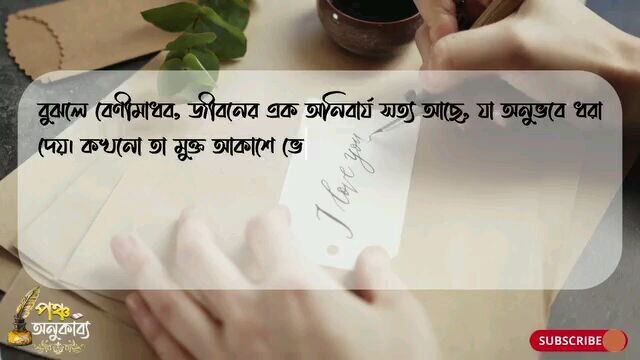 বুঝলে বেণীমাধব, জীবনের এক অনিবার্য সত্য আছে, যা অনুভবে ধরা
দেয়। কখনো তা মুক্ত আকাশে ভে
I love you
পঞ্চ
অনুকাব্য
SUBSCRIBE